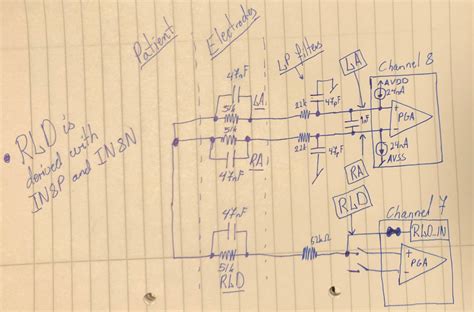 Patient
Electrodes
LP filters
Channel 8
LA
AVDD
24nA
47nF
LA
51k
22k
47pF
1nF
+
PGA
-
51k
RA
22k
47pF
24nA
47nF
AVSS
RA
RLD
• RLD is
derived with
IN8P and IN8N
Channel 7
RLD_IN
47nF
51k
RLD
+
PGA
-